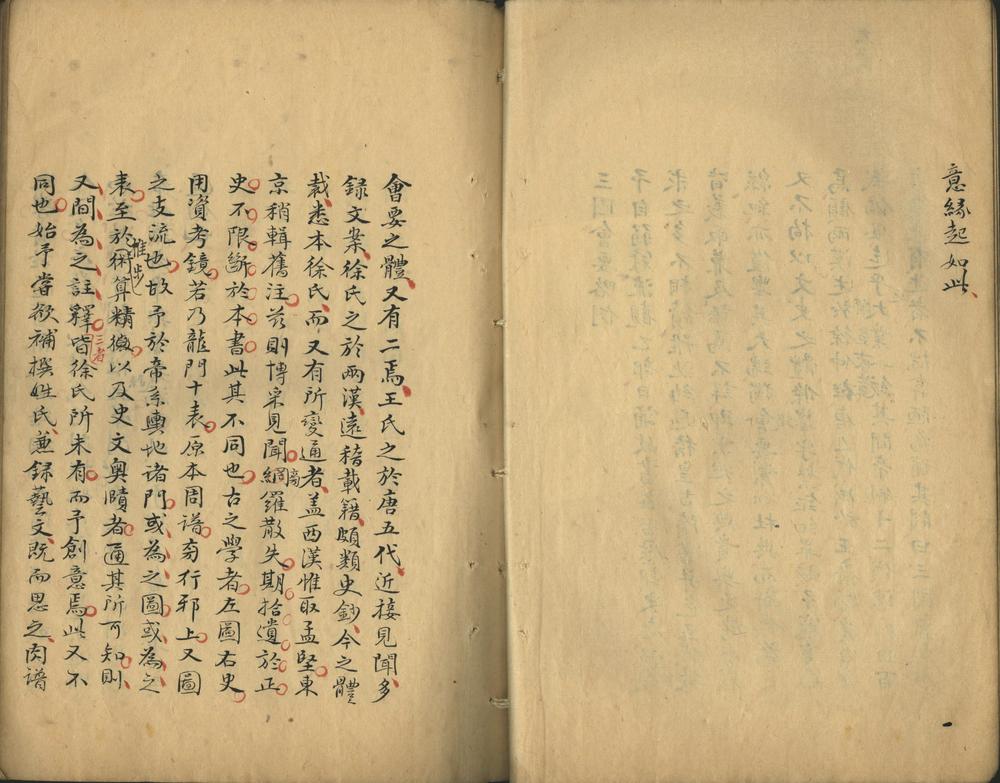 意緣起如此
會要之體又有二焉王氏之於唐五代近接見聞多
録文案徐氏之於兩漢遠稽載籍頗類史鈔今之體
裁悉本徐氏而又有所變通者盖西漢惟取孟堅東
京稍輯舊注茲則博采見聞網羅散失期拾遺於正
史不限斷於本書此其不同也古之學者左圖右史
用資考鏡若乃龍門十表原本周譜旁行邪上又圖
之支流也故予於帝系輿地诸門或為之圖或為之
表至於推步術算精微以及史文奧賾者逼其所可知則
又間為之註釋三者皆徐氏所未有而予創意焉此又不
同也始予嘗欲補撰姓氏兼録藝文既而思之肉譜